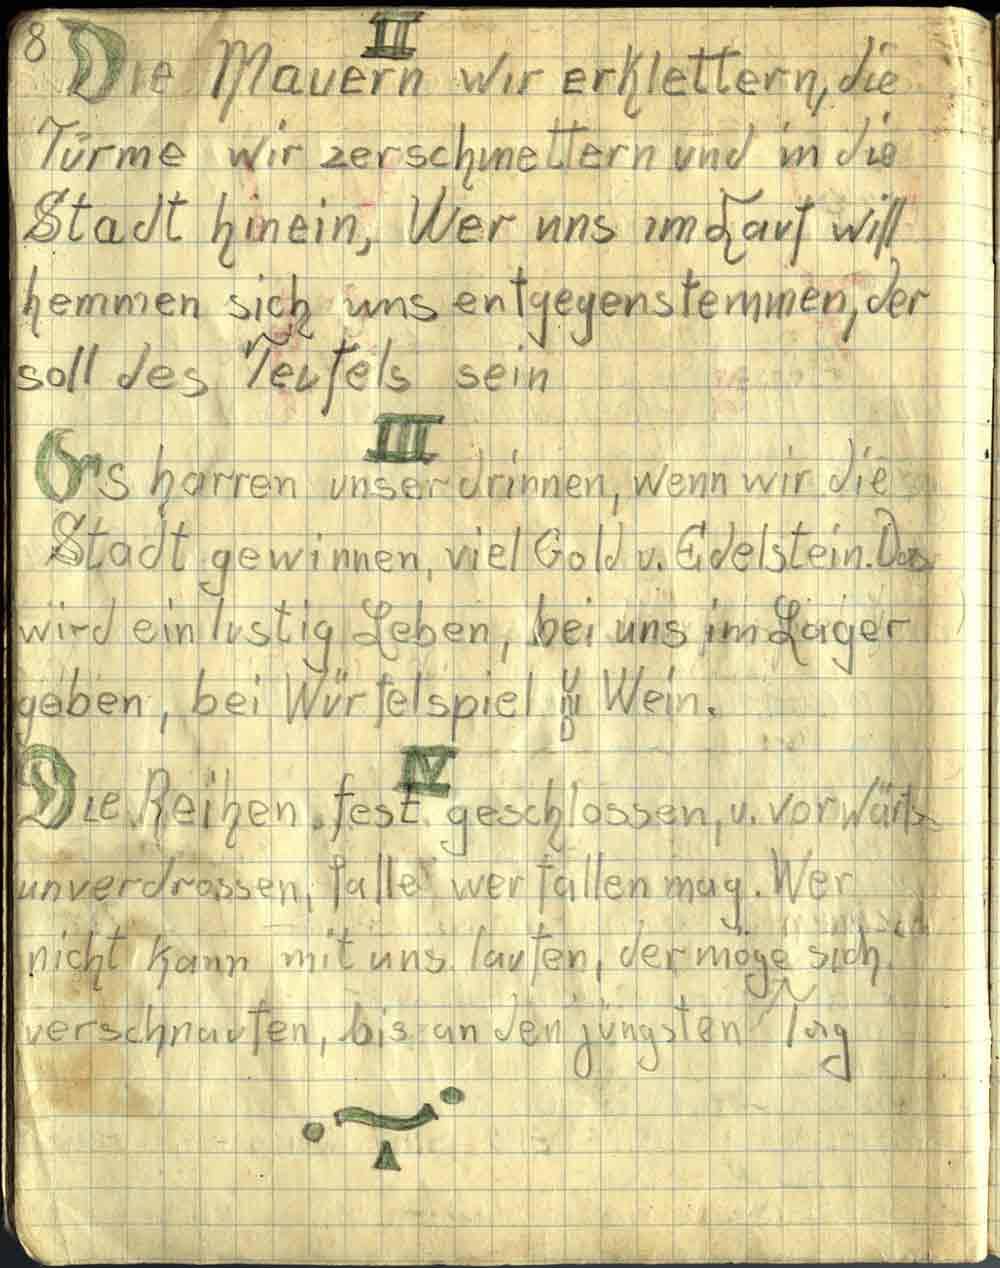 8
II
Die Mauern wir erklettern, die
Türme wir zerschmettern und in die
Stadt hinein, Wer uns im Lauf will
hemmen sich uns entgegenstemmen, der
soll des Teufels sein
III
Es harren unser drinnen, wenn wir die
Stadt gewinnen, viel Gold u. Edelstein. Das
wird ein lustig Leben, bei uns im Lager
geben, bei Würfelspiel UND Wein.
IV
Die Reihen fest geschlossen, u. vorwärts
unverdrossen, falle wer fallen mag. Wer
nicht kann mit uns laufen, der möge sich
verschnaufen, bis an den jüngsten Tag